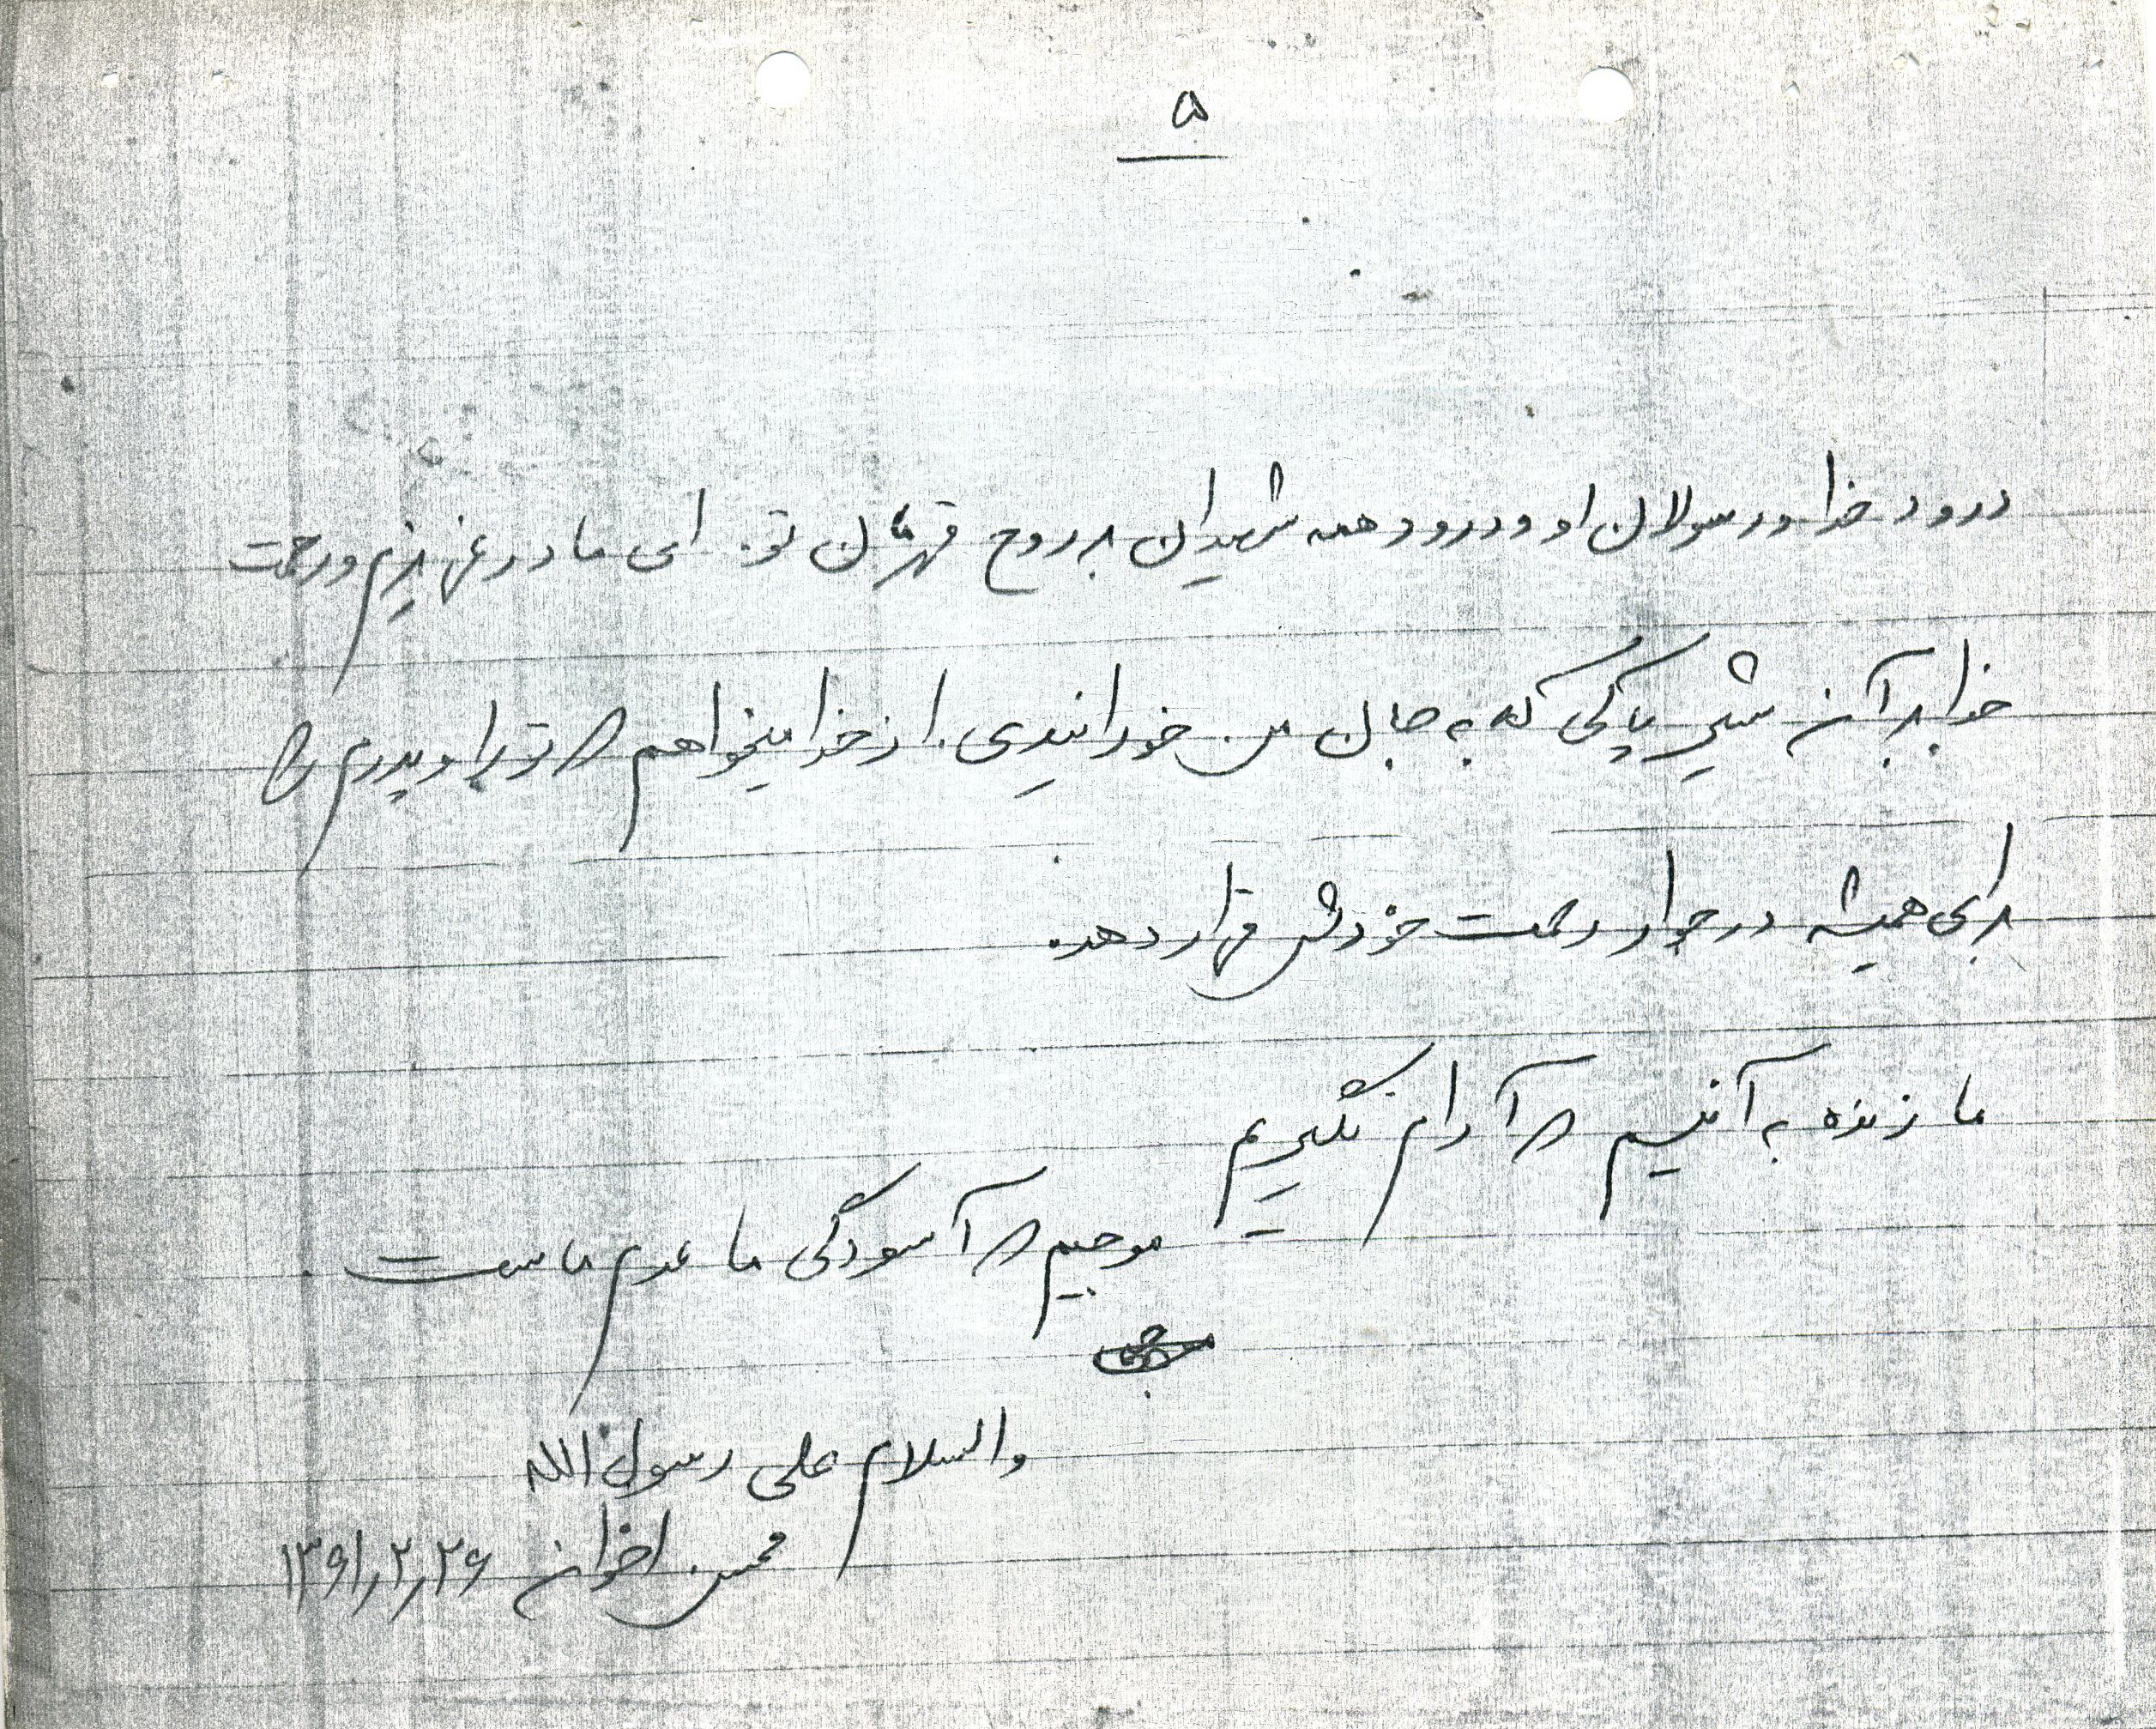 ۵
درود خدا و رسولان او و درود همه شهیدان بر روح قهرمان تو. ای مادر عزیزم و رحمت
خدا بر آن شیر پاکی که به جان من خوراندی. از خدا میخواهم که تو را و پدرم را
برای همیشه در جوار رحمت خودش قرار دهد.
ما زنده به آنیم که آرام نگیریم
موجیم که آسودگی ما عدم ماست.
والسلام علی رسول الله
محسن اخوان ۱۳۶۱٫۲٫۲۶